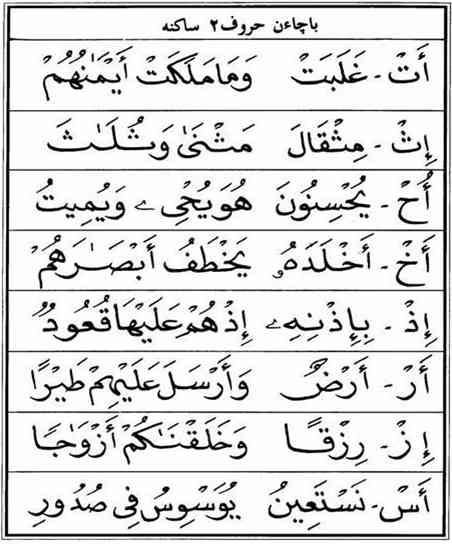 باچاءن حروف٢ ساكنه
أَتْ - غَلَبَتْ وَمَا مَلَكَتْ أَيْمَٰنُهُمْ
إِثْ - مِثْقَالَ مَثْنَىٰ وَثُلَٰثَ
أُحْ - يُحْسِنُونَ هُوَ يُحْيِۦ وَيُمِيتُ
أَخْ - أَخْلَدَهُۥ يَخْطَفُ أَبْصَٰرَهُمْ
إِذْ - بِإِذْنِهِۦ إِذْ هُمْ عَلَيْهَا قُعُودٌ
أَرْ - أَرْضٌ وَأَرْسَلَ عَلَيْهِمْ طَيْرًا
إِزْ - رِزْقًا وَخَلَقْنَٰكُمْ أَزْوَٰجًا
أَسْ - نَسْتَعِينُ يُوَسْوِسُ فِى صُدُورِ